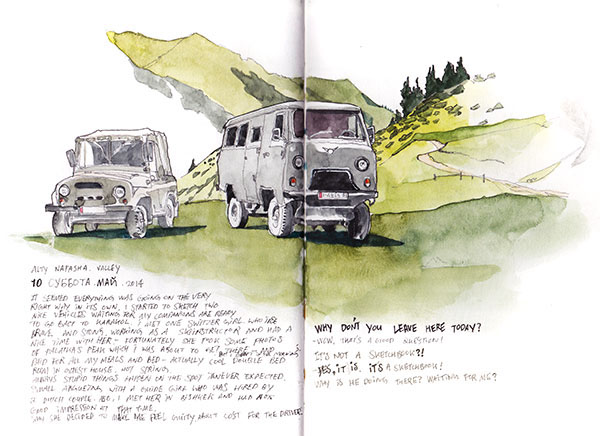 ALTY NATASHA. VALLEY
10 СУББОТА. МАЙ. 2014
IT SEEMED EVERYTHING WAS GOING ON THE VERY
RIGHT WAY IN ITS OWN. I STARTED TO SKETCH TWO
NICE VEHICLES WAITING FOR MY COMPANIONS ARE READY
TO GO BACK TO KARAKOL. I MET ONE SWITZER GIRL WHO
BRAVE AND STRONG, WORKING AS A SKIINSTRUCTOR AND HAD A
NICE TIME WITH HER - FORTUNATELY SHE TOOK SOME PHOTOS
OF PALATKA'S PEAK WHICH I WAS ABOUT TO GET. AND
BED FOR ALL MY MEALS AND BED - ACTUALLY COOL DOUBLE BED
ROOM IN GUEST HOUSE, NOT
ALWAYS STUPID THINGS HAPPEN ON THE SPOT UNEVER EXPECTED.
SMALL ARGUEING WITH A GUIDE GIRL WHO WAS HIRED BY
A DUTCH COUPLE. ALSO, I MET HER IN BISHKEK AND HAD
GOOD IMPRESSION AT THAT TIME.
WHY SHE DECIDED TO MAKE ME FEEL GUILTY ABOUT COST FOR THE DRIVER
WHY DON'T YOU LEAVE HERE TODAY?
-WOW, THAT'S A GOOD QUESTION!
IT'S NOT A SKETCHBOOK?!
-YES, IT IS. IT'S A SKETCHBOOK!
WHY IS HE DOING THERE? WAITING FOR ME?